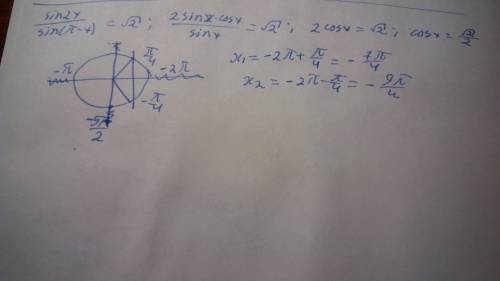 sin2x/sin(π-x) = √2; 2sinx·cosx/sinx = √2; 2cosx = √2; cosx = √2/2
π/4
-π
-2π
-π/4
-5π/2
x₁ = -2π + π/4 = -7π/4
x₂ = -2π - π/4 = -9π/4